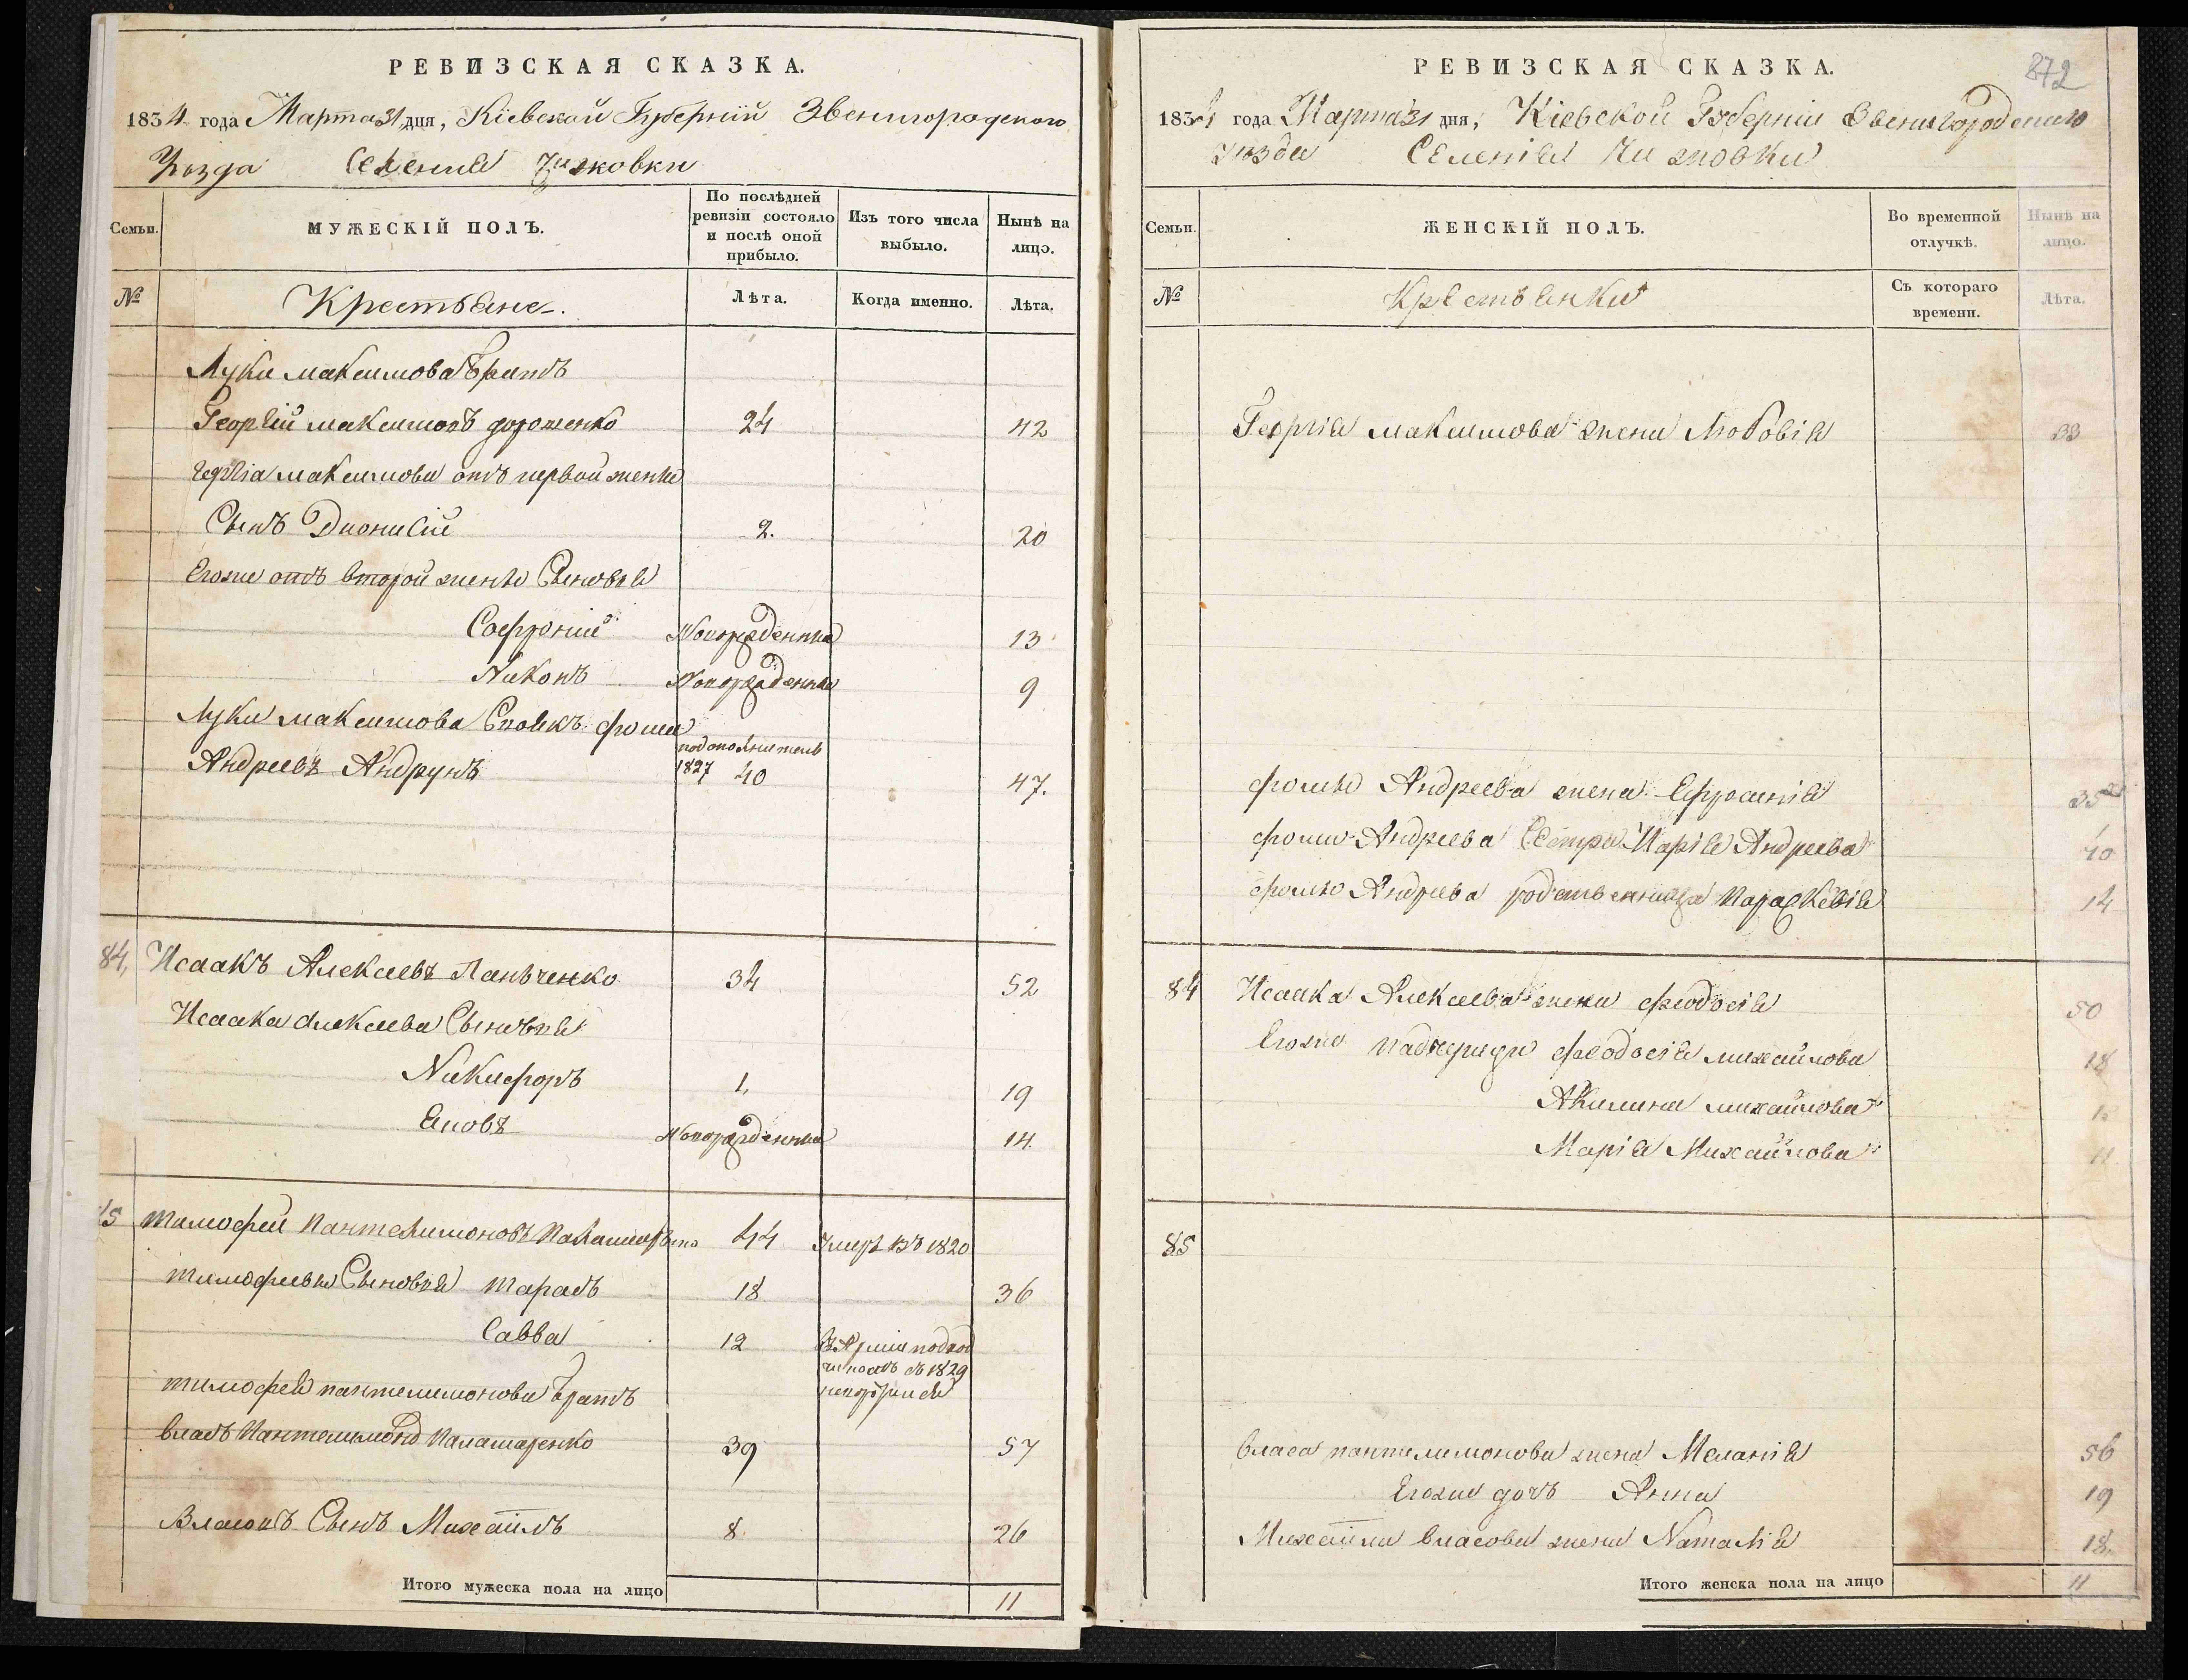 РЕВИЗСКАЯ СКАЗКА.
1834 года Марта 31 дня, Кіевской Губерніи Звенигородского
Уѣзда Селенія Чижовки
Семьи. МУЖЕСКІЙ ПОЛЪ. По послѣдней ревизіи состояло и послѣ оной прибыло. Изъ того числа выбыло. Нынѣ на лицо.
№ Крестьяне. Лѣта. Когда именно. Лѣта.
Луки Максимова братъ
Георгій Максимовъ Дорошенко 24 42
Георгіа Максимова отъ первой жены
Сынъ Дионисій 2. 20
Егоже отъ второй жены Сыновья
Софроній Новорожденны 13
Никонъ Новорожденны 9
Луки Максимова Фома
Андреевъ Андрунъ 1827 40 47.
84, Исаакъ Алексеевъ Панченко 34 52
Исаака Алексеева Сыновья
Никифоръ 1, 19
Новорожденны 14
Тимофей Пантелимоновъ 44 Умеръ въ 1820
Тимофеевы Сыновья Тарасъ 18 36
Савва 12 1829
Тимофея Пантелимонова братъ
Власъ Паламаренко 39 57
Власовъ Сынъ Михаилъ 8. 26
Итого мужеска пола на лицо 11
872
РЕВИЗСКАЯ СКАЗКА.
1834 года Марта 31 дня, Кіевской Губерніи Звенигородского
Уѣзда Селенія Чижовки
Семьи. ЖЕНСКІЙ ПОЛЪ. Во временной отлучкѣ. Нынѣ на лицо.
№ Крестьянки Съ котораго времени. Лѣта.
Георгія Максимова жена Любовія 33
Фомы Андреева жена Ефросинія 35
Фомы Андреева Сестра Марія Андреева 40
Фомы Андреева родственница Параскевія 14
84 Исаака Алексеева жена Феодосія 50
Егоже падчерицы Феодосія Михайлова 18
Акилина Михайлова
Марія Михайлова 11
85
Власа Пантелимонова жена Меланія 56
Егоже дочь Анна 19
Михаила Власова жена Наталія 18
Итого женска пола на лицо 11